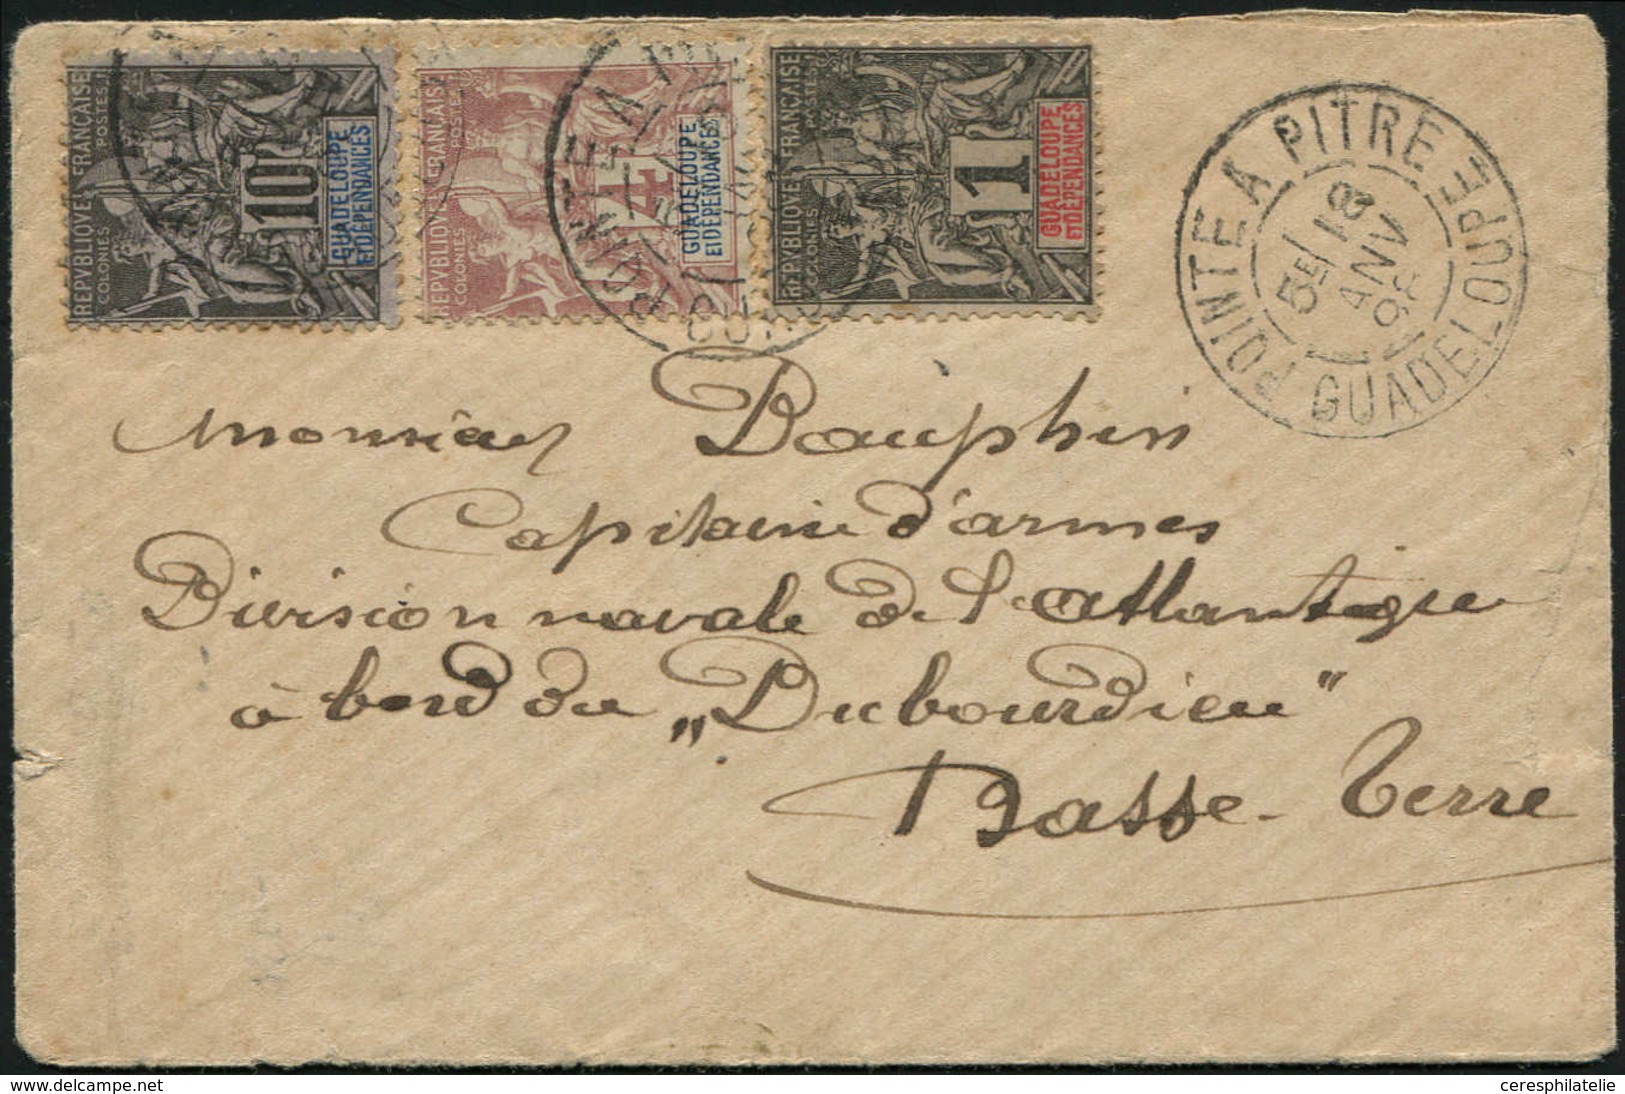 REPVBLIQVE FRANÇAISE
COLONIES POSTES
10
GUADELOUPE
ET DEPENDANCES
REPVBLIQVE FRANÇAISE
COLONIES POSTES
4
GUADELOUPE
ET DEPENDANCES
REPVBLIQVE FRANÇAISE
COLONIES POSTES
1
GUADELOUPE
ET DEPENDANCES
POINTE A PITRE
18
JANV
GUADELOUPE
Monsieur Dauphin
Capitaine d'armes
Division navale de l'atlantique
à bord du „Dubourdieu"
Basse-Terre
www.delcampe.net
ceresphilatelie